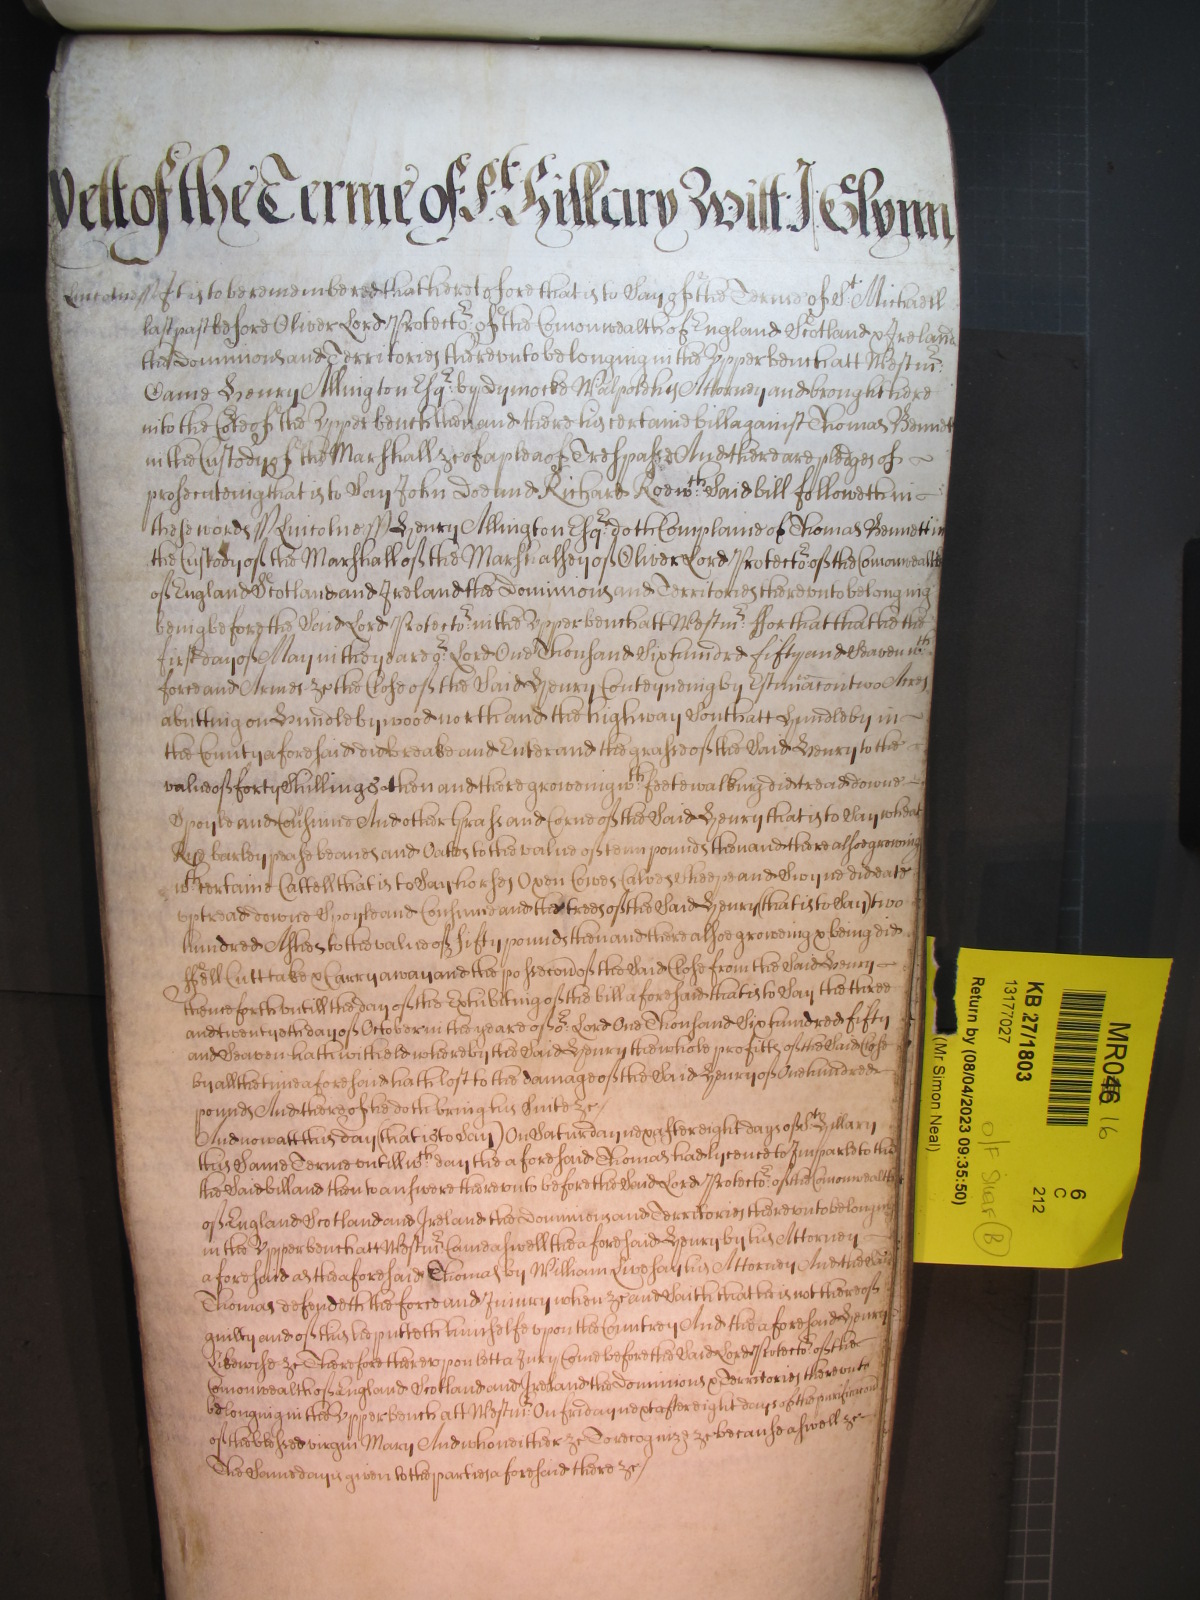 yett of the Terme of St Hillary Witt: J: Glynn
Lincolne ss It is to be remembered that heretofore that is to say of the Terme of St. Michaell
last past before Oliver Lord Protector of the Comonwealth of England Scotland & Ireland
the Dominions and Territories thereunto belonging in the Upper bench att Westmr:
Came Henry Allington Esqr: by Dymocke Walpole his Attorney and brought here
into the Cort of the Upper bench then and there his certaine bill against Thomas Bennett
in the Custody of the Marshall &c of a plea of Trespasse And there are pledges of
prosecuteing that is to say John Doe and Richard Roe wch. said bill followeth in
these words ss Lincolne ss Henry Allington Esqr: doth Complaine of Thomas Bennett in
the Custody of the Marshall of the Marshalsey of Oliver Lord Protector of the Comonwealth
of England Scotland and Ireland the Dominions and Territories thereunto belonging
being before the said Lord Protector: in the Upper bench att Westmr: ffor that that he the
first day of May in the yeare of or: Lord One Thousand Six hundred fifty and Seaven wth
force and Armes &c the Close of the said Henry Conteyneing by Estimacon two Acres
abutting on Hundleby wood north and the highway South att Hundleby in
the County aforesaid did breake and Enter and the grasse of the said Henry to the
value of forty Shillings then and there groweing wth feete walking did tread downe
Spoyle and Consume And other Grasse and Corne of the said Henry that is to say wheat
Rye barley pease beanes and Oates to the value of tenn pounds then and there alsoe growing
wth certaine Cattell that is to say horses Oxen Cowes Calves Sheepe and Swyne did eate
up tread downe Spoyle and Consume and the trees of the said Henry (that is to say) two
hundred Ashes to the value of fifty pounds then and there alsoe groweing & being did
ffell Cutt take & Carry away and the possession of the said Close from the said Henry
thenceforth untill the day of the Exhibiting of the bill aforesaid that is to say the three
and twentyeth day of October in the yeare of or: Lord One Thousand Six hundred fifty
and Seaven hath witheld whereby the said Henry the whole profitts of the said Close
by all the time aforesaid hath lost to the damage of the said Henry of One hundred
pounds And thereof he doth bring his Suite &c
And now att this day (that is to say) On Saturday next after eight dayes of St Hillary
this same Terme untill wch day the aforesaid Thomas had lycence to Imparle to the
the said bill and then to answere thereunto before the said Lord Protector: of the Comonwealth
of England Scotland and Ireland the Dominions and Territories thereunto belonging
in the Upper bench att Westmr: Came aswell the aforesaid Henry by his Attorney
aforesaid as the aforesaid Thomas by William Livesay his Attorney And the said
Thomas defendeth the force and Injury when &c and saith that he is not thereof
guilty and of this he putteth himselfe upon the Countrey And the aforesaid Henry
Likewise &c Therefore thereupon lett a Jury Come before the said Lord Protector: of the
Comonwealth of England Scotland and Ireland the Dominions & Territories thereunto
belonging in the Upper bench att Westmr: On friday next after eight dayes of the purificacon
of the blessed virgin Mary And who neither &c To recognize &c because aswell &c
The same day is given to the parties aforesaid there &c
MR046
16
6
C
212
KB 27/1803
13177027
Return by (08/04/2023 09:35:50)
(Mr Simon Neal)